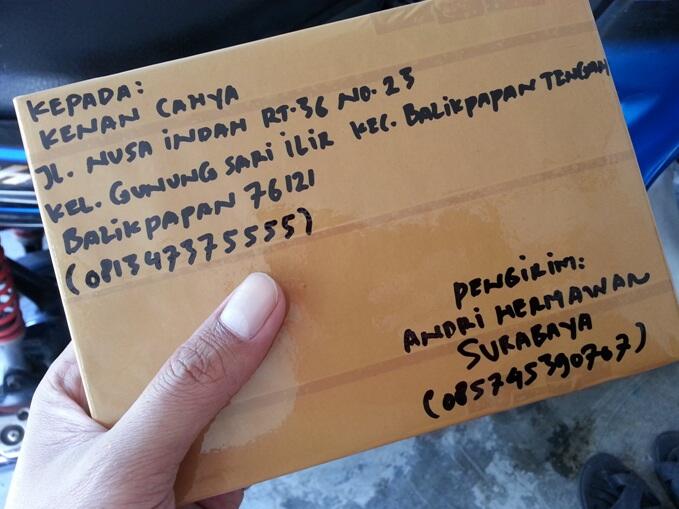 KEPADA:
KENAN CAHYA
JL. NUSA INDAH RT.36 NO.23
KEL. GUNUNG SARI ILIR KEC. BALIKPAPAN TENGAH
BALIKPAPAN 76121
(081347375555)
PENGIRIM:
ANDRI HERMAWAN
SURABAYA
(085745390767)